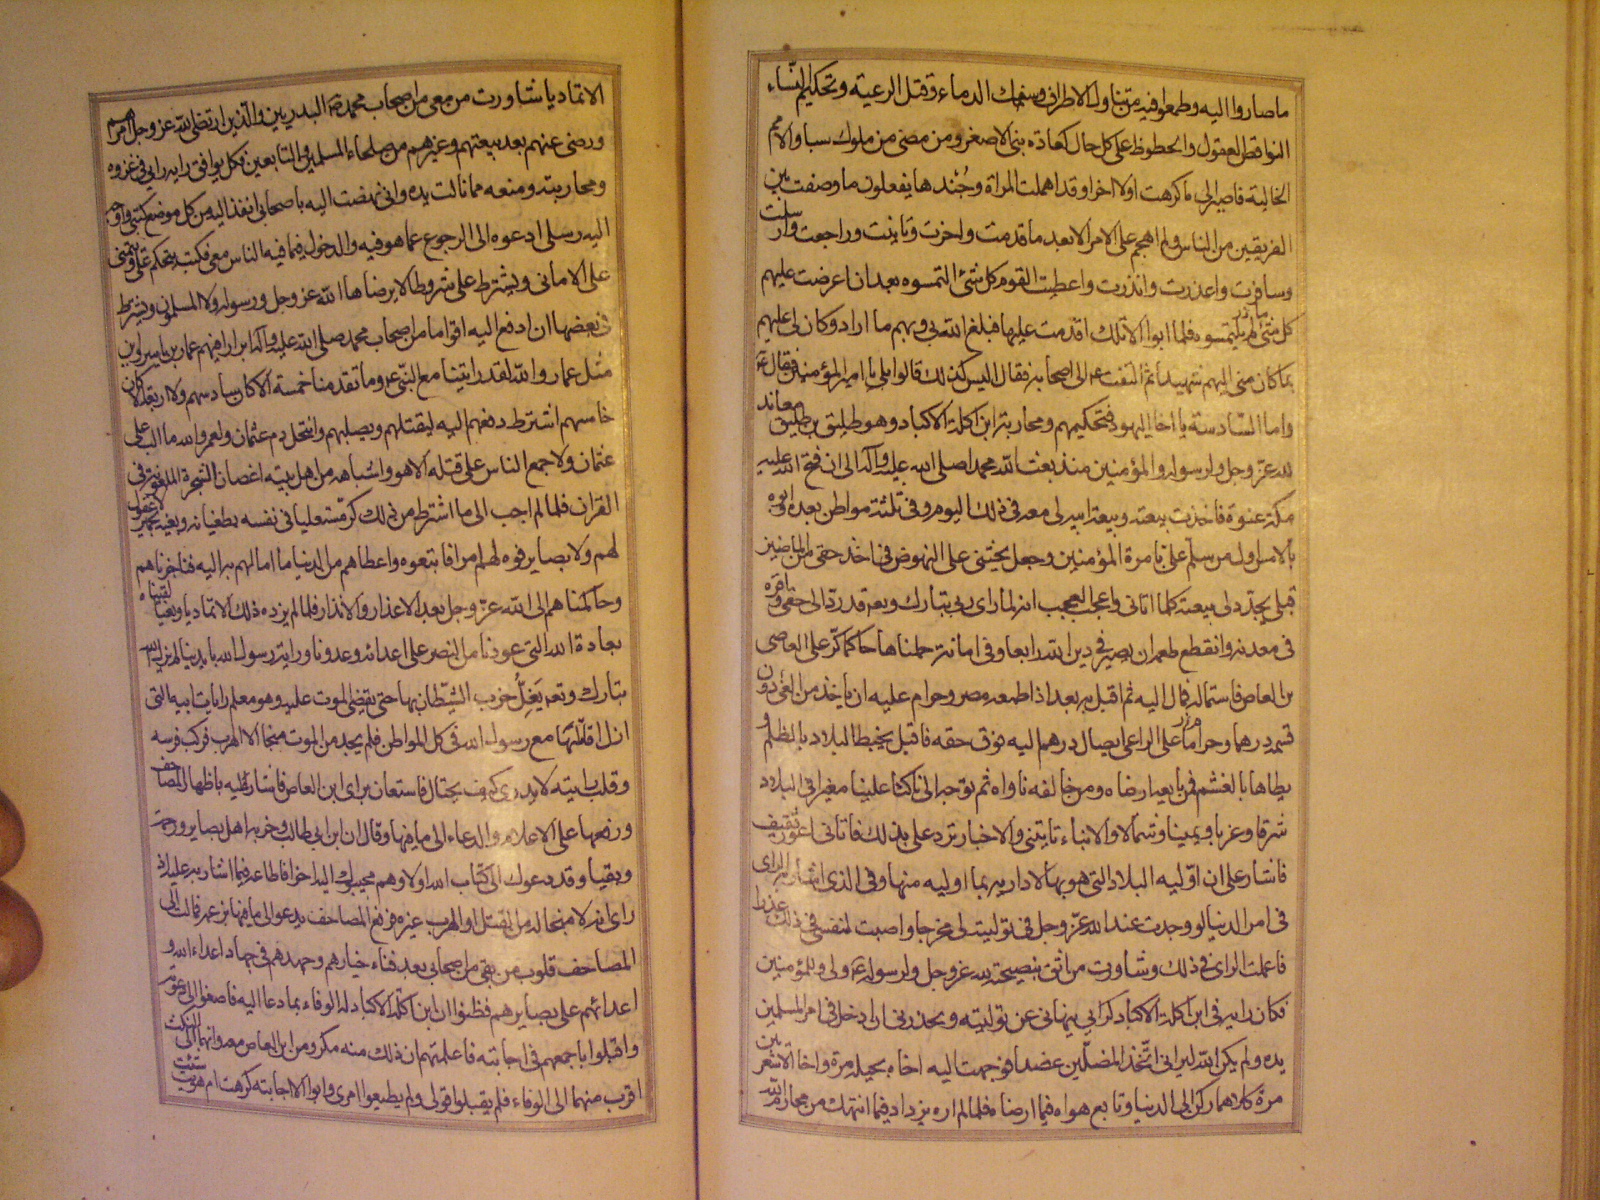 ما صاروا اليه وطمعوا فيه من تناول الاطراف وسفك الدماء وقتل الرعية وتحكيم النساء
النواقص العقول والحظوظ على كل حال كعادة بنى الاصفر ومن مضى من ملوك سبا والامم
الخالية فاصير الى ما كرهت اولا واخرا وقد اهملت المراة وجندها يفعلون ما وصفت بين
الفريقين من الناس ولم اهجم على الامر الا بعد ما قدمت واخرت وتانيت وراجعت وارسلت
وسافرت واعذرت وانذرت واعطيت القوم كل شئ التمسوه بعد ان عرضت عليهم
كل شئ لم يلتمسوه فلما ابوا الا تلك اقدمت عليها فبلغ الله بى وبهم ما اراد وكان لى عليهم
بما كان منى اليهم شهيدا ثم التفت الى اصحابه فقال اليس كذلك قالوا بلى يا امير المؤمنين فقال
واما السادسة يا اخا اليهود فتحكيمهم ومحاربة ابن اكلة الاكباد وهو طليق بن طليق معاند
لله عز وجل ولرسوله والمؤمنين منذ بعث الله محمدا صلى الله عليه واله الى ان فتح الله عليه
مكة عنوة فاخذت بيعته وبيعة ابيه لى معه فى ذلك اليوم وفى ثلثة مواطن بعده وابوه
بالامس اول من سلم على بامرة المؤمنين وجعل يحثنى على النهوض فى اخذ حقى من الماضين
قبلى يجدد لى بيعته كلما اتانى واعجب العجب انه لما راى ربى تبارك وتع قد رد الى حقى واقره
فى معدنه وانقطع طمعه ان يصير فى دين الله رابعا وفى امانة حملناها حاكما كر على العاصى
بن العاص فاستماله فمال اليه ثم اقبل به بعد اذ اطمعه مصر وحرام عليه ان ياخذ من الفئ دون
قسمه درهما وحرام على الراعى ايصال درهم اليه فوق حقه فاقبل يخبط البلاد بالظلم و
يطاها بالغشم فمن بايعه ارضاه ومن خالفه ناواه ثم توجه الى ناكثا علينا مغيرا فى البلاد
شرقا وغربا ويمينا وشمالا والانباء تاتينى والاخبار ترد على بذلك فاتانى اعور ثقيف
فاشار على ان اوليه البلاد التى هو بها لاداريه بما اوليه منها وفى الذى اشار به الراى
فى امر الدنيا لو وجدت عند الله عز وجل فى توليته لى مخرجا واصبت لنفسى فى ذلك عذرا
فاعملت الراى فى ذلك وشاورت من اثق بنصيحته لله عز وجل ولرسوله ولى وللمؤمنين
فكان رايه فى ابن اكلة الاكباد كرايى ينهانى عن توليته ويحذرنى ان ادخل فى امر المسلمين
يده ولم يكن الله ليرانى اتخذ المضلين عضدا فوجهت اليه اخا بجيلة مرة واخا الاشعريين
مرة كلاهما ركن الى الدنيا وتابع هواه فيما ارضاه فلما لم اره يزداد فيما انتهك من محارم الله
الا تماديا شاورت من معى من اصحاب محمد البدريين والذين ارتضى الله عز وجل امرهم
ورضى عنهم بعد بيعتهم وغيرهم من صلحاء المسلمين والتابعين فكل يوافق رايه رايى فى غزوه
ومحاربته ومنعه مما نالت يده وانى نهضت اليه باصحابى انفذ اليه من كل موضع كتبى واوجه
اليه رسلى ادعوه الى الرجوع عما هو فيه والدخول فيما فيه الناس معى فكتب يتحكم على ويتمنى
على الامانى ويشترط على شروطا لا يرضاها الله عز وجل ورسوله ولا المسلمون ويشترط
فى بعضها ان ادفع اليه اقواما من اصحاب محمد صلى الله عليه واله ابرارا فيهم عمار بن ياسر واين
مثل عمار والله لقد رايتنا مع النبى وما تقدمنا خمسة الا كان سادسهم ولا اربعة الا كان
خامسهم اشترط دفعهم اليه ليقتلهم ويصلبهم وانتحل دم عثمان ولعمر والله ما الب على
عثمان ولا جمع الناس على قتله الا هو واشباهه من اهل بيته اغصان الشجرة الملعونة فى
القران فلما لم اجب الى ما اشترط من ذلك كر مستعليا فى نفسه بطغيانه وبغيه بحمير لا عقول
لهم ولا بصاير فموه لهم امرا فاتبعوه واعطاهم من الدنيا ما امالهم به اليه فناجزناهم
وحاكمناهم الى الله عز وجل بعد الاعذار والانذار فلما لم يزده ذلك الا تماديا وبغيا لقيناه
بعادة الله التى عودنا من النصر على اعدائه وعدونا وراية رسول الله بايدينا لم يزل الله
تبارك وتع يفل حزب الشيطان بها حتى يقضى الموت عليه وهو معلم رايات ابيه التى
لم ازل اقاتلها مع رسول الله فى كل المواطن فلم يجد من الموت منجا الا الهرب فركب فرسه
وقلب رايته لا يدرى كيف يحتال فاستعان براى ابن العاص فاشار عليه باظهار المصاحف
ورفعها على الاعلام والدعاء الى ما فيها وقال ان ابن ابى طالب وحزبه اهل بصاير ورحمة
وبقيا وقد دعوك الى كتاب الله اولا وهم مجيبوك اليه اخرا فاطاعه فيما اشار به عليه اذ
راى انه لا منجا له من القتل او الهرب غيره فرفع المصاحف يدعو الى ما فيها بزعمه فمالت الى
المصاحف قلوب من بقى من اصحابى بعد فناء خيارهم وجهدهم فى جهاد اعداء الله و
اعدائهم على بصايرهم فظنوا ان ابن اكلة الاكباد له الوفاء بما دعا اليه فاصغوا الى دعوته
واقبلوا باجمعهم فى اجابته فاعلمتهم ان ذلك منه مكر ومن ابن العاص معه وانهما الى النكث
اقرب منهما الى الوفاء فلم يقبلوا قولى ولم يطيعوا امرى وابوا الا اجابته كرهت ام هويت شئت